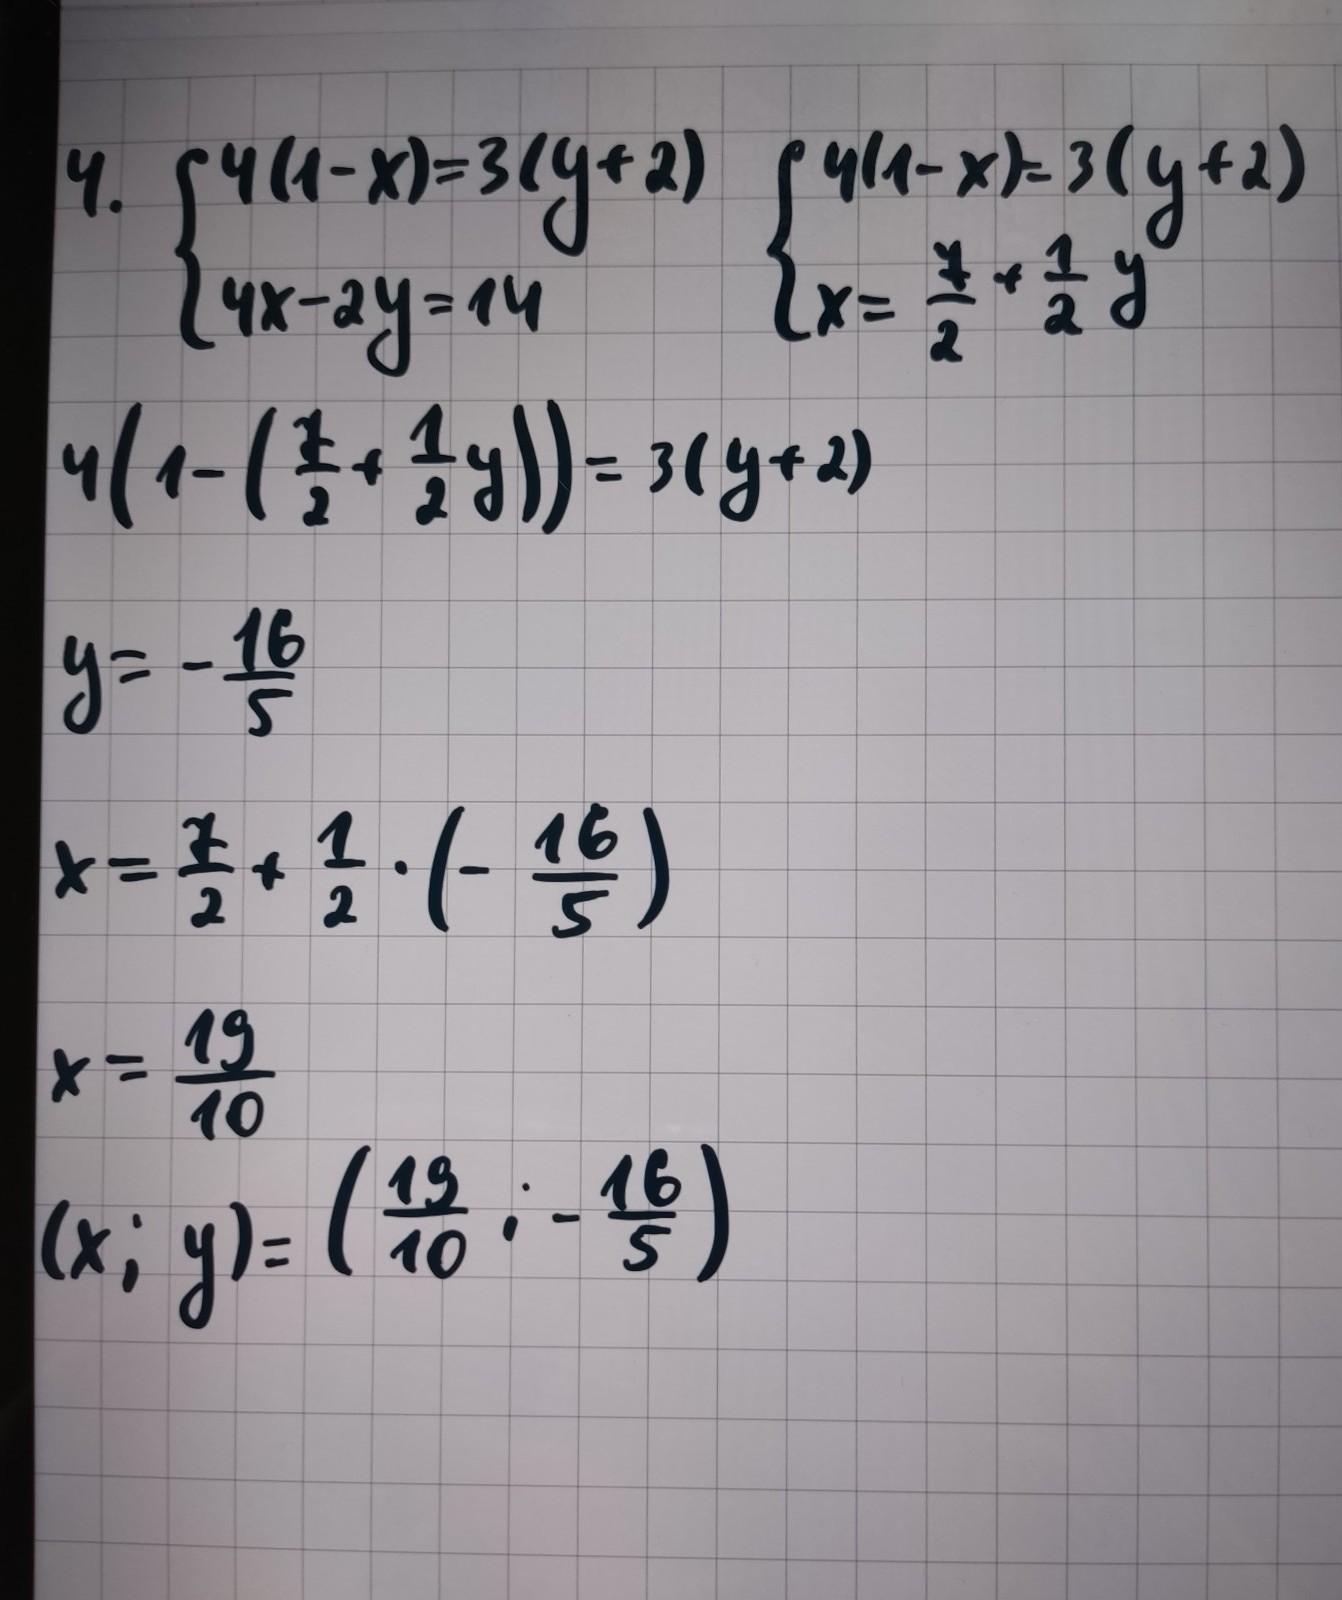 4. {4(1-x)=3(y+2) {4(1-x)=3(y+2)
{4x-2y=14 {x= 7/2 + 1/2 y
4(1-(7/2+1/2y))=3(y+2)
y= -16/5
x= 7/2 + 1/2 · (- 16/5)
x= 19/10
(x; y)= (19/10 ; -16/5)